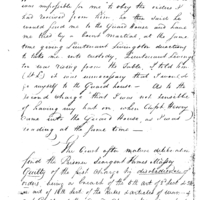 was impossible for me to obey the orders I
had received from him, he then said he
would send me to the Guard House and have
me tried by a Court Martial, at the same
time giving Lieutenant Livingston directions
to take me into custody, Lieutenant Living
ton was rising from the Table
it was unnecessary that I would
go myself to the Guard House — As to the
second charge that I was not sensible
of having any hat on when Capt Henry
came into the Guard House, as I was
reading at the same time —
The Court after mature deliberation
find the Prisoner Sergeant
Guilty of the first charge by disobedience of
orders, being in breach of the 6th Art. of 2d Sect. & the
Art of 18th Sect. of the Rules & articles of war —